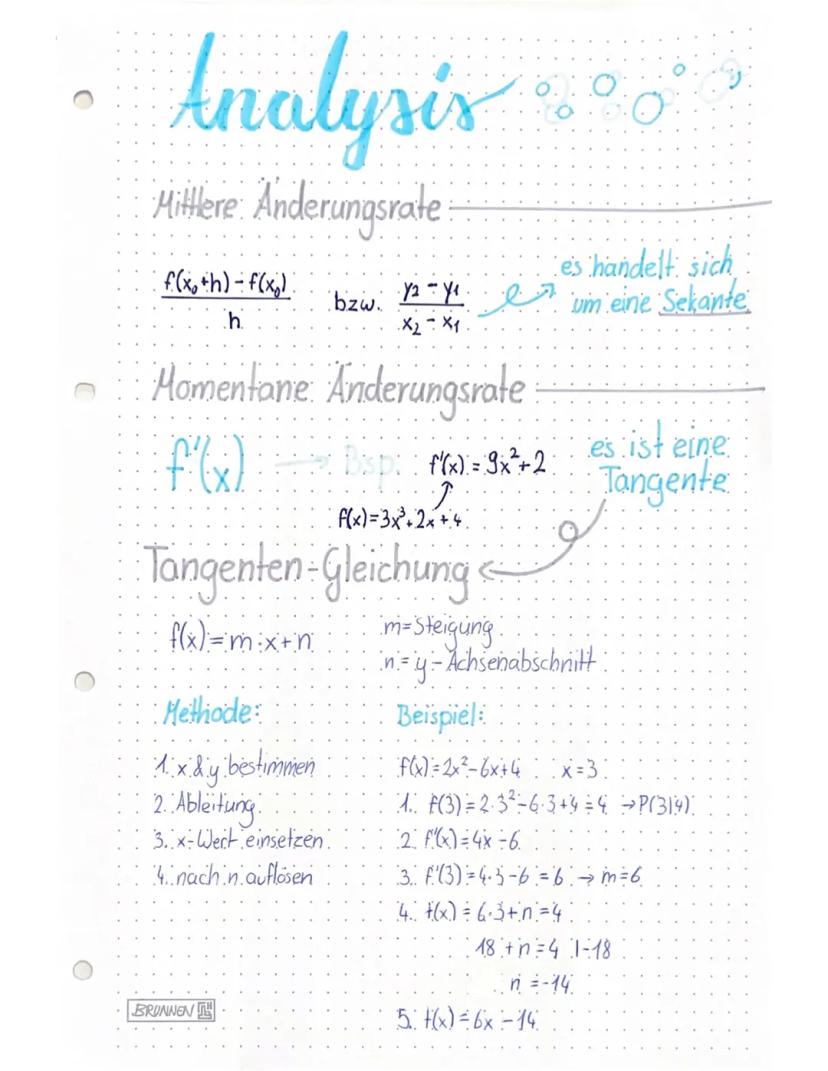 Analysis
Mittlere Änderungsrate
f(x₀+h) - f(x₀)
h
bzw.
y₂ - y₁
x₂ - x₁
es handelt sich
um eine Sekante
Momentane Änderungsrate
f'(x) → Bsp. f'(x) = 9x²+2
f(x)=3x³+2x+4
es ist eine
Tangente
Tangenten-Gleichung
f(x)=m·x+n
m=Steigung
n=y-Achsenabschnitt
Methode:
1. x & y bestimmen
2. Ableitung
3. x-Wert einsetzen
4. nach n auflösen
Beispiel:
f(x)=2x²-6x+4 x=3
1. f(3)=2·3²-6·3+4=4 →P(3|4)
2. f'(x)=4x-6
3. f'(3)=4·3-6=6 → m=6
4. t(x)=6·3+n=4
18+n=4 |-18
n=-14
5. t(x)=6x-14
BRUNNEN